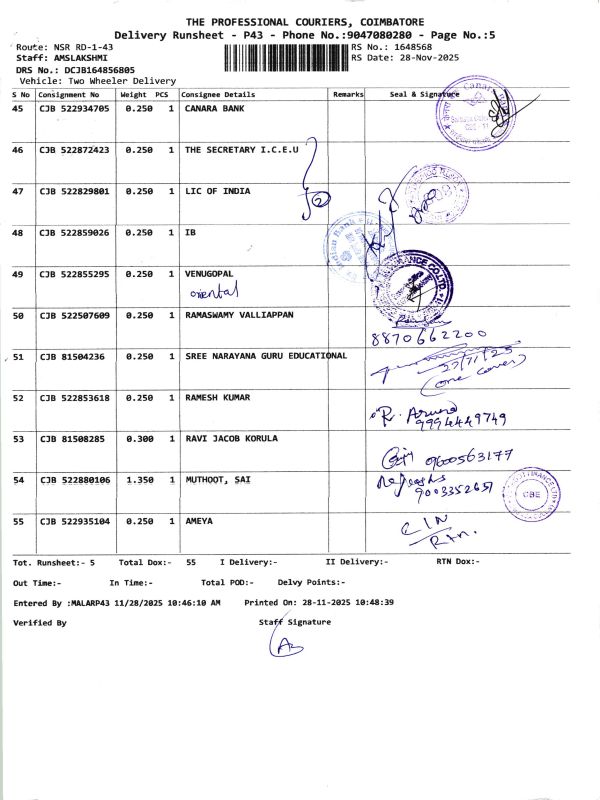 THE PROFESSIONAL COURIERS, COIMBATORE
Delivery Runsheet - P43 - Phone No.:9047080280 - Page No.:5
Route: NSR RD-1-43 RS No.: 1648568
Staff: AMSLAKSHMI RS Date: 28-Nov-2025
DRS No.: DCJB164856805
Vehicle: Two Wheeler Delivery
S No Consignment No Weight PCS Consignee Details Remarks Seal & Signature
45 CJB 522934705 0.250 1 CANARA BANK
46 CJB 522872423 0.250 1 THE SECRETARY I.C.E.U
2
47 CJB 522829801 0.250 1 LIC OF INDIA
48 CJB 522859026 0.250 1 IB
Indian Bank
49 CJB 522855295 0.250 1 VENUGOPAL
oriental
50 CJB 522507609 0.250 1 RAMASWAMY VALLIAPPAN
8870662200
51 CJB 81504236 0.250 1 SREE NARAYANA GURU EDUCATIONAL
27/11/25
(one cover)
52 CJB 522853618 0.250 1 RAMESH KUMAR
R.
9994449749
53 CJB 81508285 0.300 1 RAVI JACOB KORULA
9600563177
54 CJB 522880106 1.350 1 MUTHOOT, SAI
9003352657
CBE
55 CJB 522935104 0.250 1 AMEYA
CIN
Rtn.
Tot. Runsheet:- 5 Total Dox:- 55 I Delivery:- II Delivery:- RTN Dox:-
Out Time:- In Time:- Total POD:- Delvy Points:-
Entered By :MALARP43 11/28/2025 10:46:10 AM Printed On: 28-11-2025 10:48:39
Verified By Staff Signature